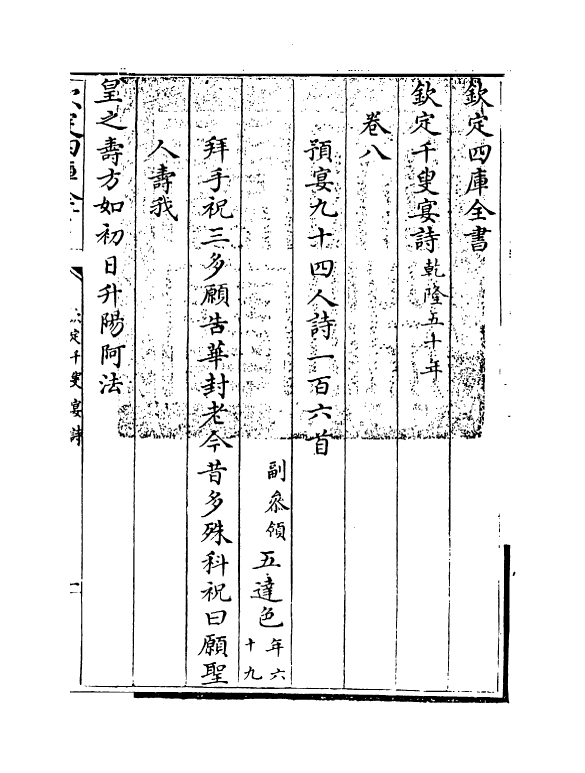 欽定四庫全書
欽定千叟宴詩乾隆五十年
卷八
預宴九十四人詩一百六首
副叅領五達色年六十九
拜手祝三多願告華封老今昔多殊科祝曰願聖
人壽我
皇之壽方如初日升陽阿法
欽定四庫全書
欽定千叟宴詩
一